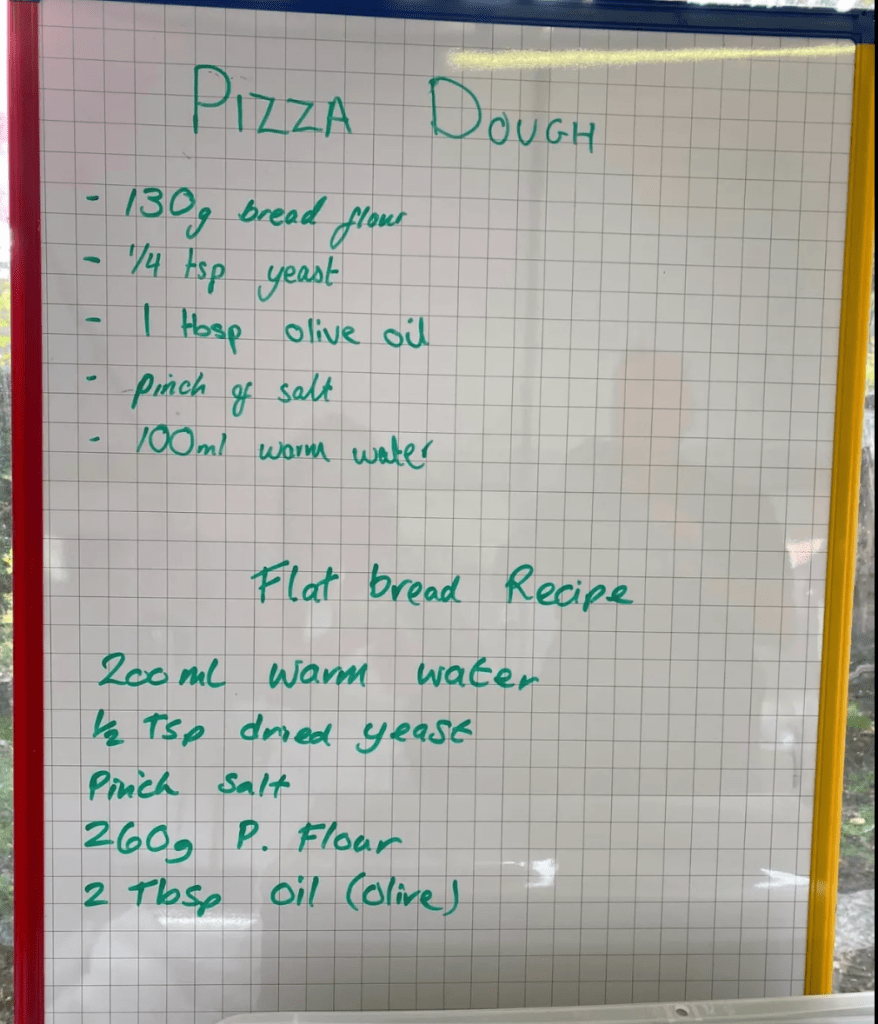 PIZZA DOUGH
- 130g bread flour
- 1/4 tsp yeast
- 1 tbsp olive oil
- pinch of salt
- 100ml warm water
Flat bread Recipe
200ml warm water
1/2 Tsp dried yeast
Pinch salt
260g P. Flour
2 Tbsp oil (olive)